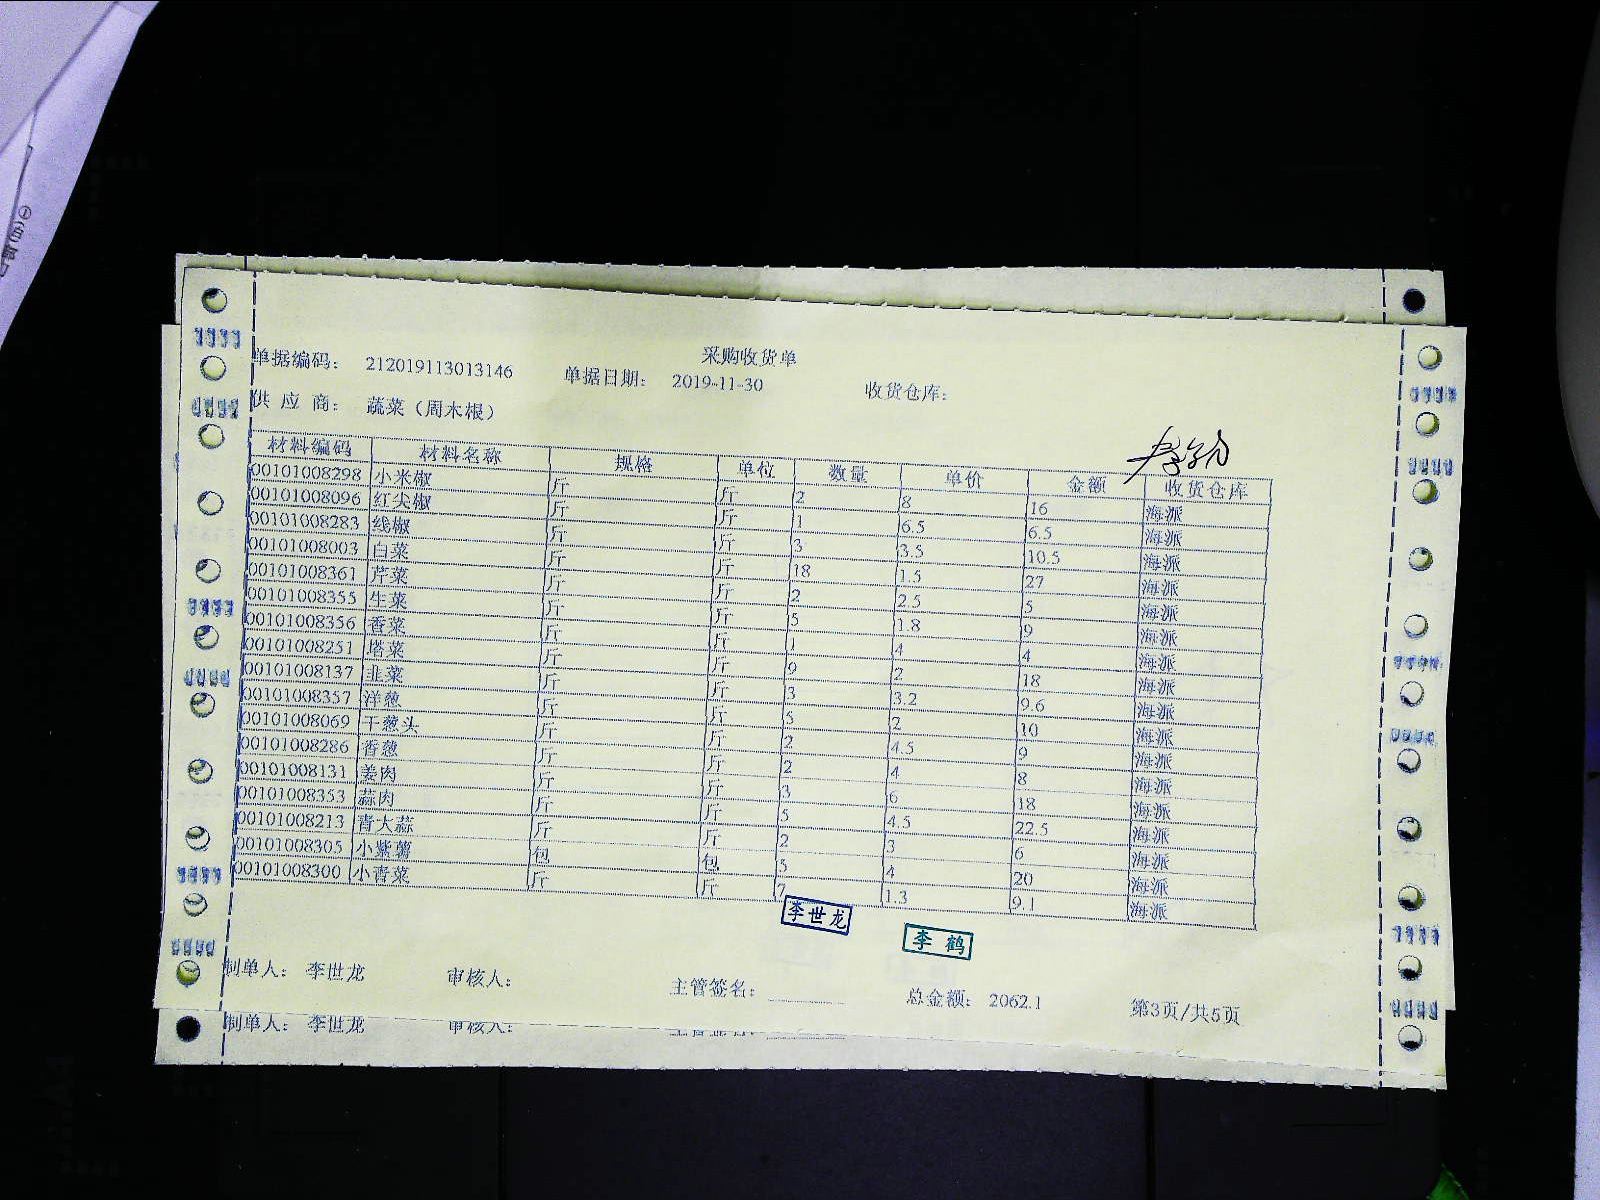 采购收货单
单据编码: 212019113013146 单据日期: 2019-11-30 收货仓库:
供 应 商: 蔬菜（周木根）
材料编码 材料名称 规格 单位 数量 单价 金额 收货仓库
00101008298 小米椒 斤 斤 2 8 16 海派
00101008096 红尖椒 斤 斤 1 6.5 6.5 海派
00101008283 线椒 斤 斤 3 3.5 10.5 海派
00101008003 白菜 斤 斤 18 1.5 27 海派
00101008361 芹菜 斤 斤 2 2.5 5 海派
00101008355 生菜 斤 斤 5 1.8 9 海派
00101008356 香菜 斤 斤 1 4 4 海派
00101008251 塔菜 斤 斤 9 2 18 海派
00101008137 韭菜 斤 斤 3 3.2 9.6 海派
00101008357 洋葱 斤 斤 5 2 10 海派
00101008069 干葱头 斤 斤 2 4.5 9 海派
00101008286 香葱 斤 斤 2 4 8 海派
00101008131 姜肉 斤 斤 3 6 18 海派
00101008353 蒜肉 斤 斤 5 4.5 22.5 海派
00101008213 青大蒜 斤 斤 2 3 6 海派
00101008305 小紫薯 包 包 5 4 20 海派
00101008300 小青菜 斤 斤 7 1.3 9.1 海派
李世龙
李 鹤
制单人: 李世龙 审核人: 主管签名: 总金额: 2062.1 第3页/共5页
制单人: 李世龙 审核人: